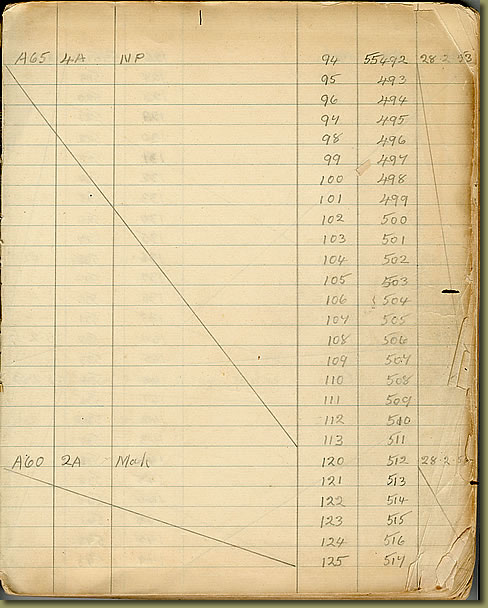 A65 4A NP 94 55492 28 2 53
95 493
96 494
97 495
98 496
99 497
100 498
101 499
102 500
103 501
104 502
105 503
106 504
107 505
108 506
109 507
110 508
111 509
112 510
113 511
A60 2A 120 512 28 2
121 513
122 514
123 515
124 516
125 517